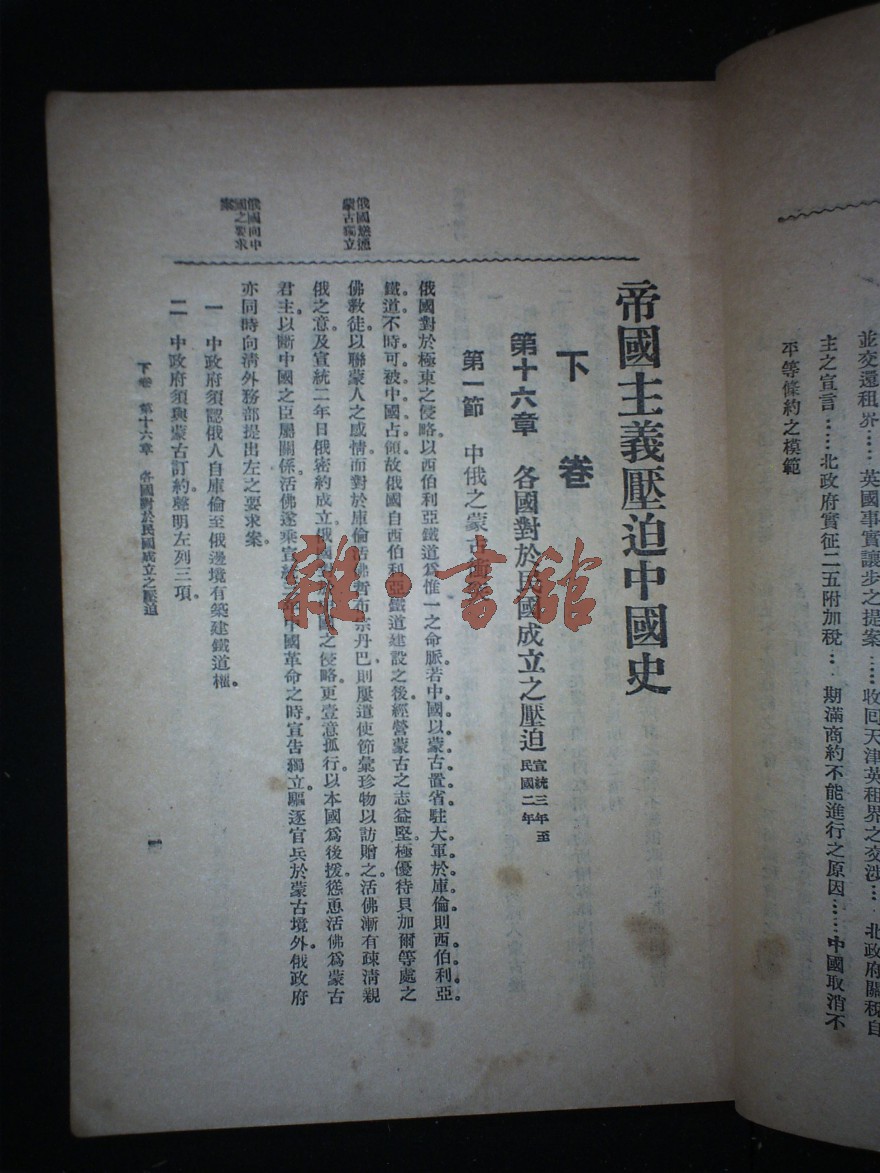 並交還租界……英國事實讓步之提案……收回天津英租界之交涉……北政府關稅自
主之宣言……北政府實征二五附加稅……期滿商約不能進行之原因……中國取消不
平等條約之模範
帝國主義壓迫中國史
下卷
第十六章 各國對於民國成立之壓迫 宣統三年至民國二年
第一節 中俄之蒙古
俄國慫恿蒙古獨立
俄國對於極東之侵略以西伯利亞鐵道爲惟一之命脈若中國以蒙古置省駐大軍於庫倫則西伯利亞
鐵道不時可被中國占領故俄國自西伯利亞鐵道建設之後經營蒙古之志益堅。極優待貝加爾等處之
佛教徒以聯蒙人之感情而對於庫倫活佛哲布宗丹巴則屢遣使節彙珍物以訪贈之。活佛漸有疎淸親
俄之意及宣統二年日俄密約成立俄國對之侵略更壹意孤行。以本國爲後援。慫恿活佛爲蒙古
君主。以斷中國之臣屬關係。活佛遂乘宣統三年中國革命之時宣吿獨立。驅逐官兵於蒙古境外。俄政府
俄國向中國之要求案
亦同時向淸外務部提出左之要求案。
一 中政府須認俄人自庫倫至俄邊境有築建鐵道權。
二 中政府須與蒙古訂約聲明左列三項。
下卷 第十六章 各國對於民國成立之壓迫
一
雜·書館